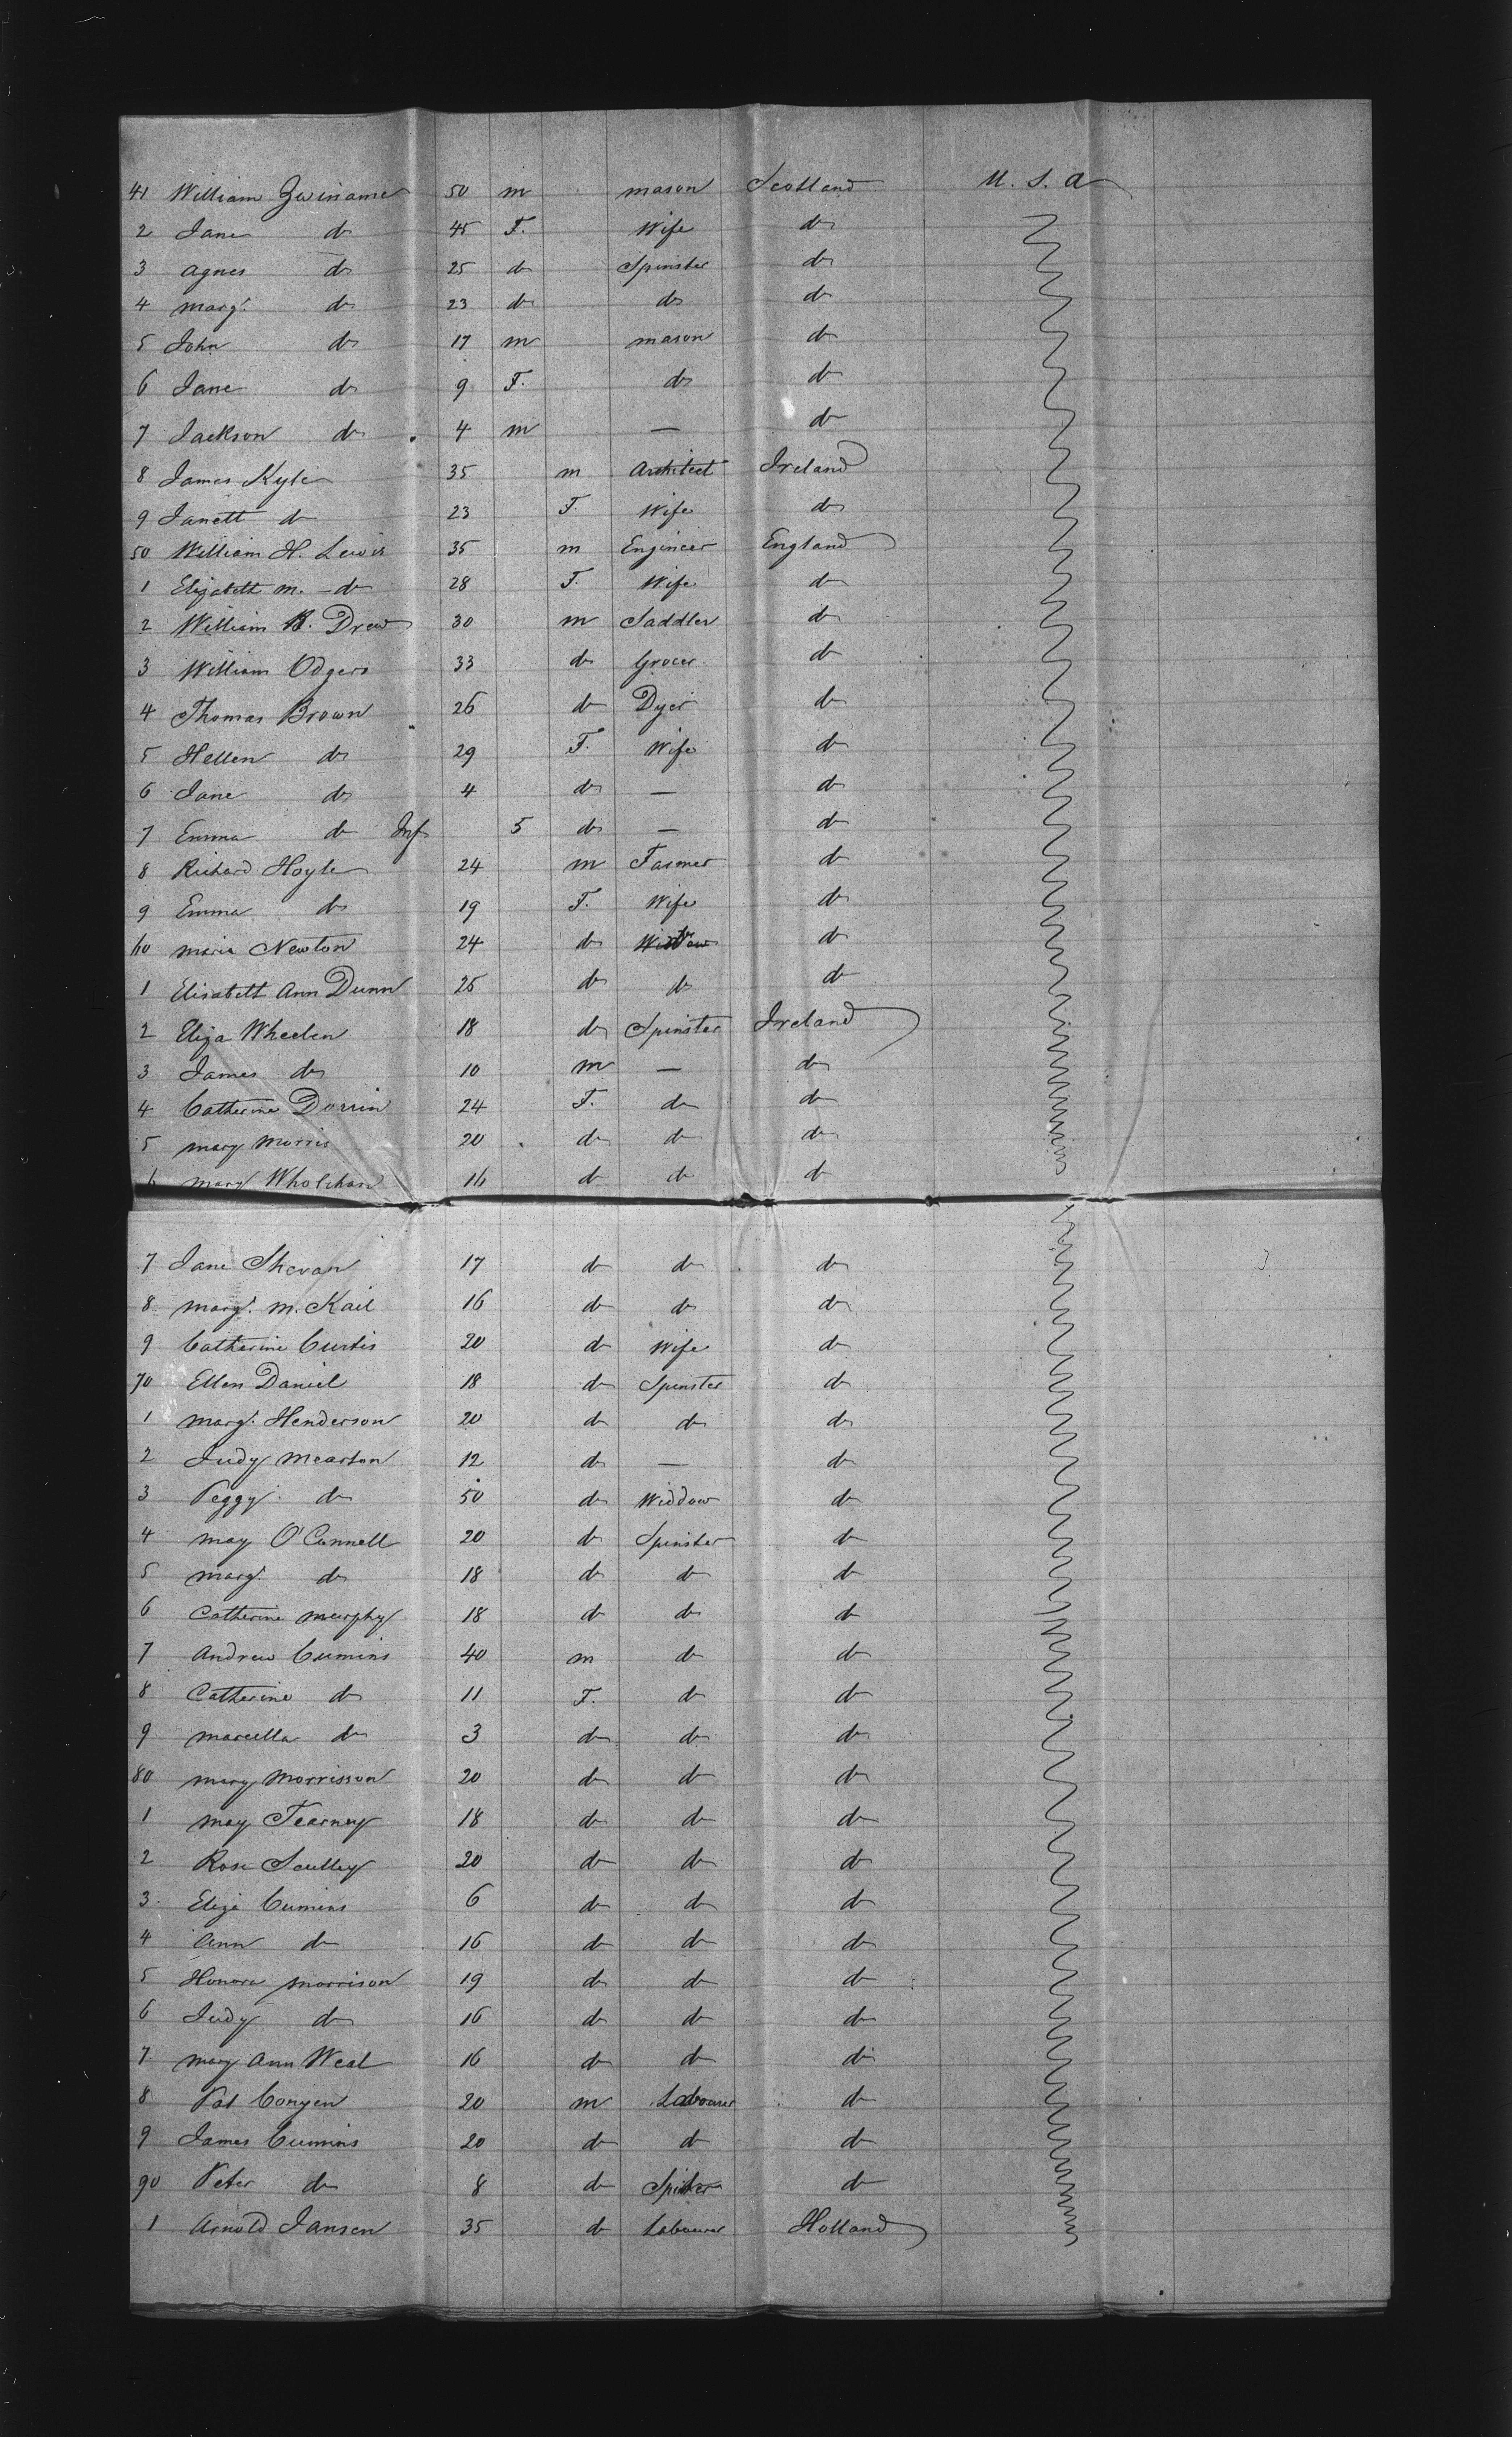 41 William Gwiname 50 m mason Scotland U.S.A
2 Jane do 45 F. Wife do
3 Agnes do 25 do Spinster do
4 Margt. do 23 do do do
5 John do 17 m mason do
6 Jane do 9 F. do do
7 Jackson do 4 m — do
8 James Kyle 35 m Architect Ireland
9 Janett do 23 F. Wife do
50 William H. Lewis 35 m Engineer England
1 Elizabeth M. - do 28 F. Wife do
2 William B. Drew 30 m Saddler do
3 William Odgers 33 do Grocer do
4 Thomas Brown 26 do Dyer do
5 Hellen do 29 F. Wife do
6 Jane do 4 do — do
7 Emma do Inf 5 do — do
8 Richard Hoyle 24 m Farmer do
9 Emma do 19 F. Wife do
60 Maria Newton 24 do do
1 Elisabett Ann Dunn 25 do do do
2 Eliza Wheelen 18 do Spinster Ireland
3 James do 10 m — do
4 Catherine Dorrin 24 F. do do
5 Mary Morris 20 do do do
6 Mary Wholihan 16 do do do
7 Jane Shevan 17 do do do
8 Margt. M. Kail 16 do do do
9 Catherine Curtis 20 do Wife do
70 Ellen Daniel 18 do Spinster do
1 Margt. Henderson 20 do do do
2 Judy Mearton 12 do — do
3 Peggy do 50 do Widdow do
4 May O'Connell 20 do Spinster do
5 Margt. do 18 do do do
6 Catherine Murphy 18 do do do
7 Andrew Cumins 40 m do do
8 Catherine do 11 F. do do
9 Marcella do 3 do do do
80 Mary Morrisson 20 do do do
1 May Tearney 18 do do do
2 Rose Sculley 20 do do do
3 Eliza Cumins 6 do do do
4 Ann do 16 do do do
5 Honora Morrison 19 do do do
6 Judy do 16 do do do
7 Mary Ann Weal 16 do do do
8 Pat Conyen 20 m Labourer do
9 James Cumins 20 do do do
90 Peter do 8 do do
1 Arnold Jansen 35 do Labourer Holland